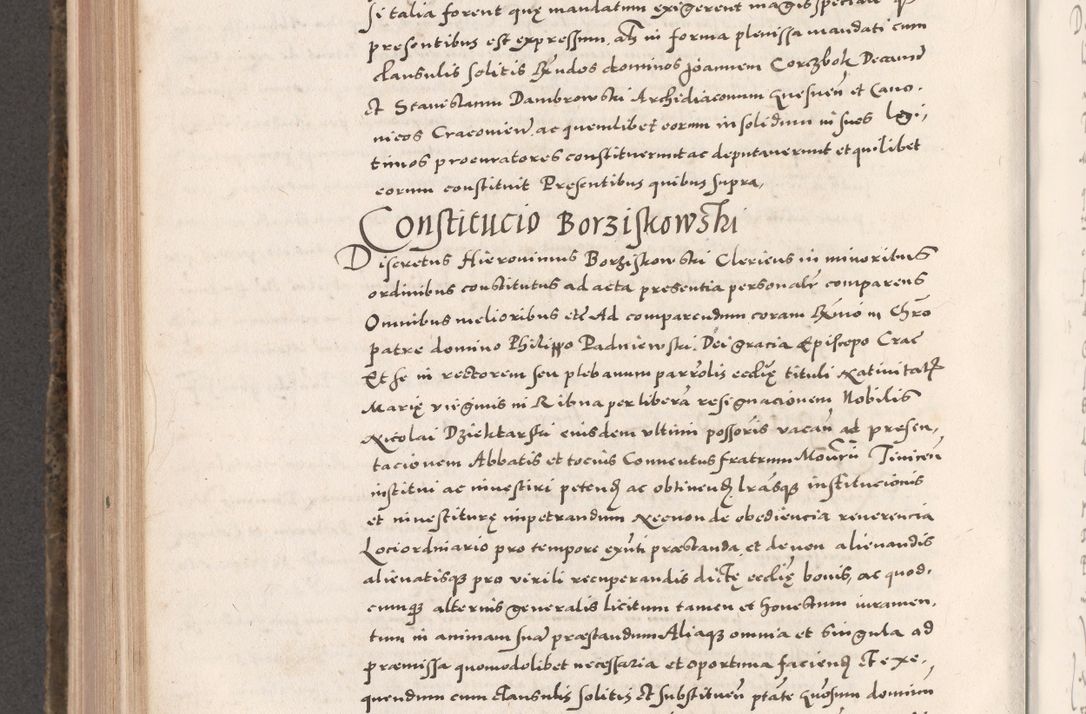 si talia forent quę mandatum exigerent magis speciale q̃
presentibus est expressum, ac̃ in forma plenissa mandati cum
clausulis solitis Rṽndos dominos Joannem Corczbok Decanũ
et Stanislaum Dambrowski Archidiaconum Gnesneñ et Cano-
nicos Cracovieñ ac quemlibet eorum in solidum in suos legi-
timos procuratores constituerunt ac deputaverunt et quilibet
eorum constituit Presentibus quibus supra,
Constitucio Borziskowski
Discretus Hieronimus Borziskowski Clericus in minoribus
ordinibus constitutus ad acta presentia personalr̃ comparens
Omnibus melioribus etc̃ Ad comparendum coram Rṽmo in Chrõ
patre domino Philippo Padniewski Dei gracia Episcopo Crac̃
Et se in rectorem seu plebanum parrolis ecclię tituli Nativitatis
Marię virginis in Ribna per liberã resignacionem Nobilis
Nicolai Dziektarski eiusdem ultimi possoris vacañ ad presen-
tacionem Abbatis et tocius Conventus fratrum Monrũ Tinicen
institui ac investiri petendũ ac obtinendũ lrãsque institucionis
et investiturę impetrandum Necnon de obediencia reverencia
Loci ordinario pro tempore exñti præstanda, et de non alienandis
alienatisque pro virili recuperandis dictę ecclię bonis, ac quod-
cumque alterius generalis licitum tamen et honestum iuramen-
tum in animam suã præstandum Aliaque omnia et singula ad
præmissa quomodolibet necessaria et oportuna faciendũ et exe-
quendum cum clausulis solitis et substitueñ ptãte quosum dominũ